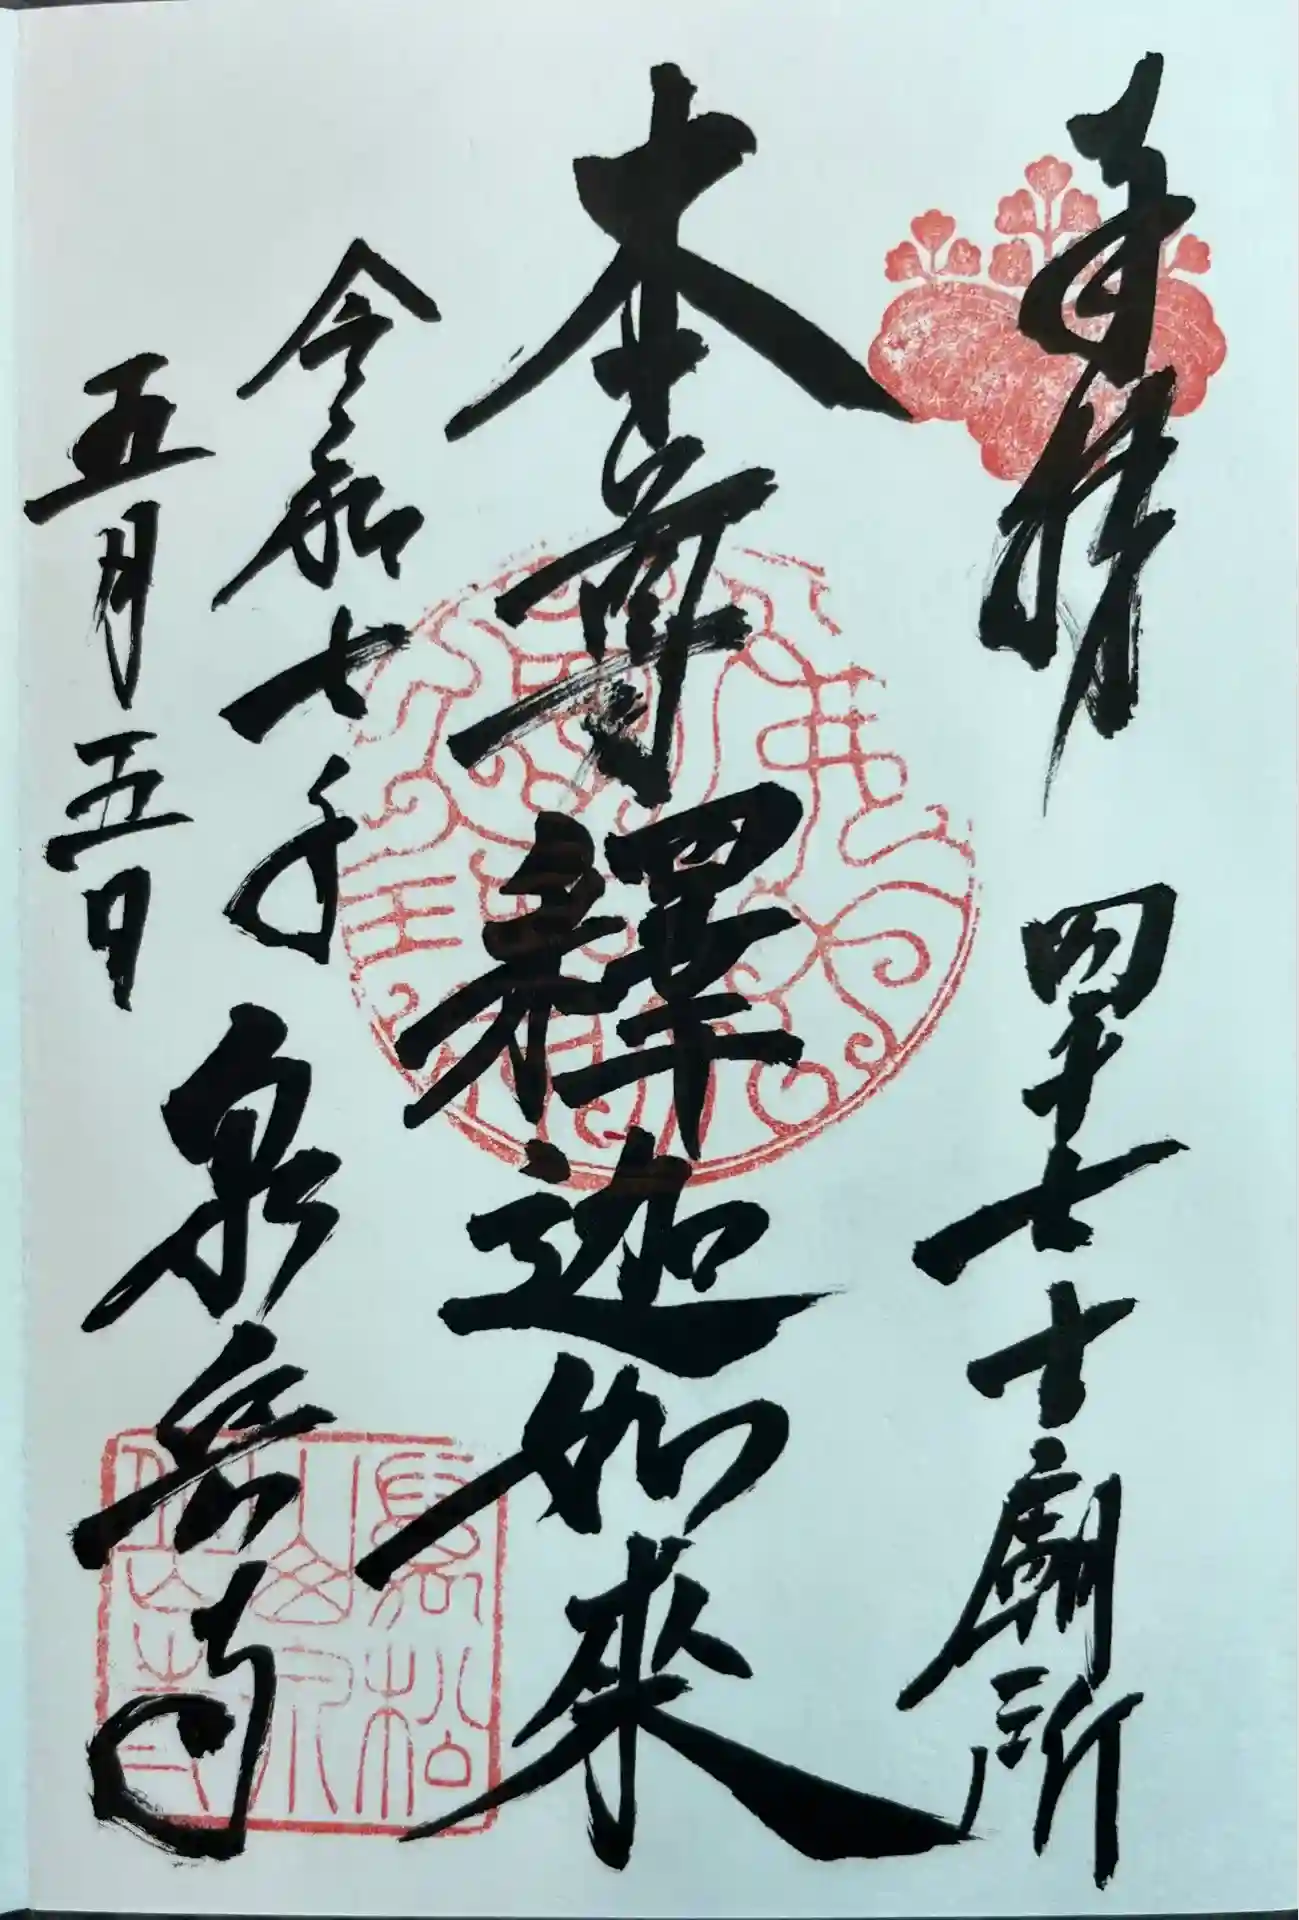 奉拝 四十七士廟所
本尊釋迦如来
令和七年
五月五日
泉岳寺
萬松山泉岳寺